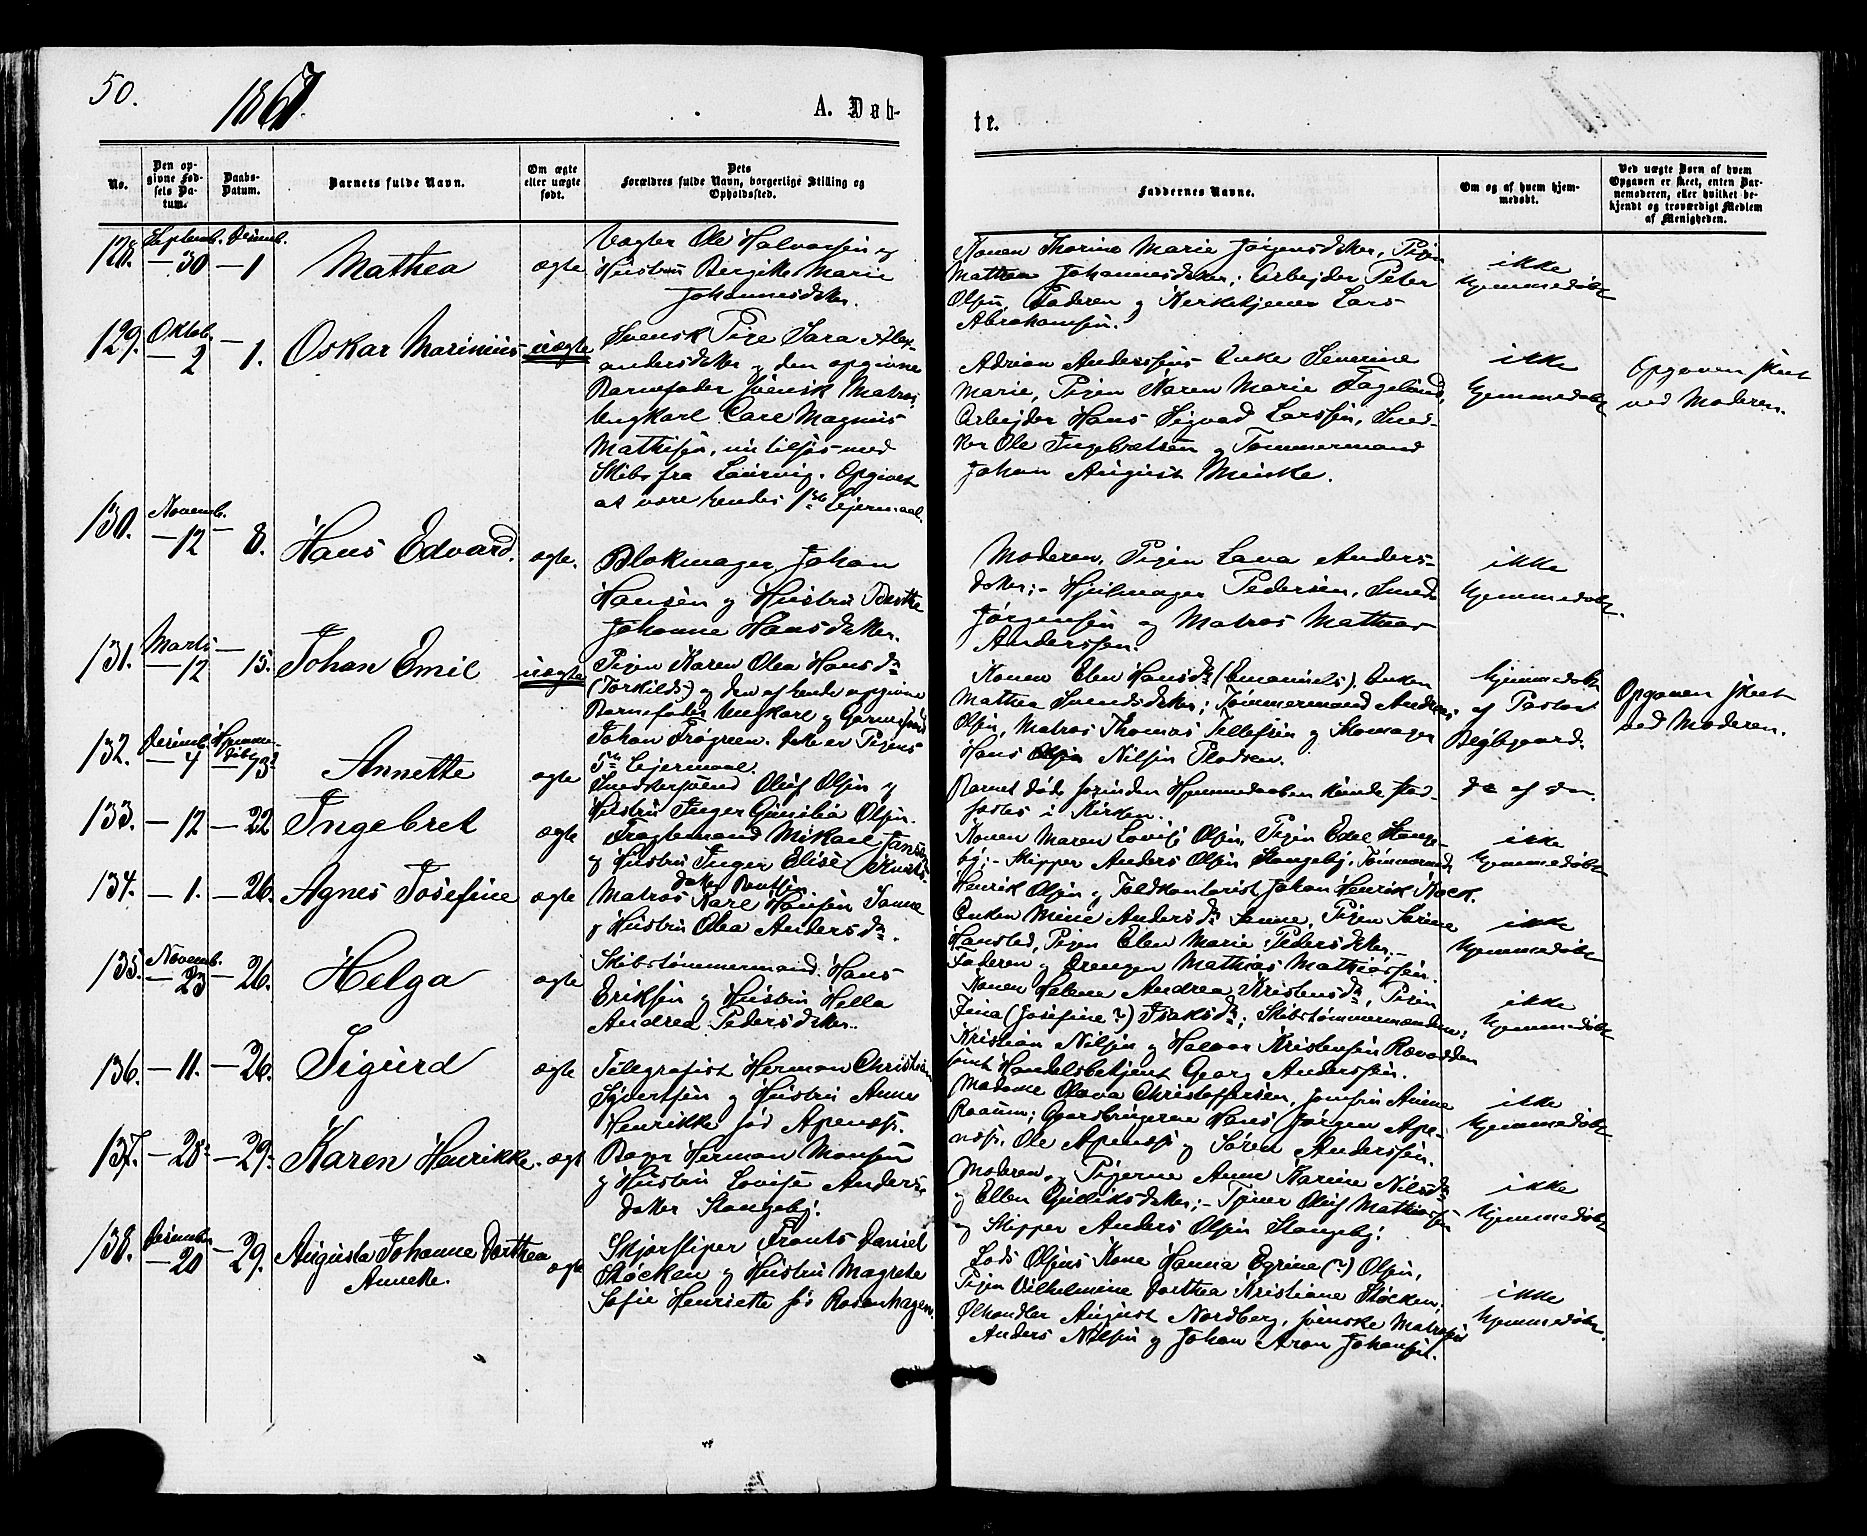 50.
1867.
A. Døb-
te.
No.
Den op-
givne Fød-
sels Da-
tum.
Daabs-
Datum.
Barnets fulde Navn.
Om ægte
eller uægte
født.
Dets
Forældres fulde Navn, borgerlige Stilling og
Opholdssted.
Faddernes Navne.
Om og af hvem hjem-
medøbt.
Ved uægte Børn af hvem
Opgaven er skeet, enten Bar-
nemoderen, eller hvilket be-
kjendt og troværdigt Medlem
af Menigheden.
128.
Septemb.
— 30
Desemb.
— 1
Mathea
ægte
Vægter Ole Halvorsen og
Hustru Bergitte Marie
Johannesdatter.
Konen Thorine Marie Jørgensdatter, Pigen
Mathea Johannesdatter; Arbejder Peter
Olsen, Faderen og Kirketjener Lars
Abrahamsen.
ikke
hjemmedøbt
129.
Oktob.
— 2
— 1.
Oskar Marinius
uægte
Svensk Pige Sara Alex-
andersdatter og den opgivne
Barnefader svensk Matros
Ungkarl Carl Magnus
Mathisen, nu tilsjøs med
Skib fra Laurvig. Opgivet
at være hendes 1ste Lejermaal.
Adrian Anderssens Enke Severine
Marie, Pigen Karen Marie Fagelund,
Arbejder Hans Sigvad Larssen, Sned-
ker Ole Ingebretsen og Tømmermand
Johan August Minke.
ikke
hjemmedøbt
Opgaven skeet
ved Moderen.
130.
Novemb.
— 12
— 8.
Hans Edvard.
ægte.
Blokmager Johan
Hansen og Hustru Berthe
Johanne Hansdatter.
Moderen, Pigen Lava Anders-
datter;- Hjulmager Pedersen, Smed
Jørgensen og Matros Mathias
Anderssen.
ikke
hjemmedøbt.
131.
Marts
— 12
— 15.
Johan Emil
uægte
Pigen Karen Olea Hansdr
(Torkilds) og den af hende opgivne
Barnefader Ungkarl og Garversvend
Johan Frøgreen. Dette er Pigens
5te Lejermaal.
Konen Elen Hansdr (Emanuels). Enken
Mathea Svendsdatter; Tømmermand Andreas
Olsen, Matros Thomas Tellefsen og Skomager
Hans Nilsen Pladsen.
hjemmedøbt
af Pastor
Bejbgaard.
Opgaven skeet
ved Moderen.
132.
Desemb.
— 4
Hjemme-
døbt
— 13
Annette
ægte
Snedkersvend Oluf Olsen og
Hustru Inger Gunilia Olsen.
Barnet døde forinden Hjemmedaaben kunde stad-
fæstes i Kirken.
do af do.
133.
— 12
— 22
Ingebret
ægte
Fragtemand Mikael Jansen
og Hustru Inger Elise Knuts-
datter Bentsen.
Konen Maren Lovise Olsen, Pigen Edel Stange-
by;- Skipper Anders Olsen Stangeby, Tømmermand
Henrik Olsen og Toldkontorist Johan Henrik Stock.
ikke
hjemmedøbt
134.
— 1.
— 26.
Agnes Josefine
ægte
Matros Karl Hansen Sanne
og Hustru Olea Andersdr.
Enken Mine Andersdr Sanne, Pigen Sarine
Hansted, Pigen Elen Marie Pedersdatter,-
Faderen og Drengen Mathias Mathiassen.
ikke
hjemmedøbt
135.
Novemb.
— 23
— 26.
Helga
ægte
Skibstømmermand Hans
Eriksen og Hustru Hella
Andrea Pedersdatter.
Konen Helene Andrea Kristensdr, Pigen
Jina (Josefine?) Isaksdr; Skibstømmermændene
Kristian Nilsen og Halvor Kristensen Rævødden
samt Handelsbetjent Georg Anderssen.
ikke
hjemmedøbt
136.
— 11.
— 26.
Sigurd
ægte
Telegrafist Herman Christian
Syvertsen og Hustru Anne
Henrikke fød Apenæs.
Madame Olava Christoffersen, Jomfru Anine
Raaum; Gaardbrugerne Hans Jørgen Ape-
næs, Ole Apenæs og Søren Anderssen.
ikke
hjemmedøbt
137.
— 28
— 29
Karen Henrikke.
ægt
Bager Herman Monsen
og Hustru Lovise Anders-
datter Stangeby.
Moderen, og Pigerne Anne Karine Nilsdr
og Ellen Gulliksdatter;- Tjener Oluf Mathiassen
og Skipper Anders Olsen Stangeby.
ikke
hjemmedøbt
138.
Desember
— 20
— 29.
Augusta Johanne Dorthea
Annette.
ægte
Skjærsliper Frants Daniel
Støcken og Hustru Magrete
Sofie Henriette fød Rosenhagen.
Lods Olsens Kone Hanna Egrine (?) Olsen,
Pigen Vilhelmine Dorthea Kristiane Støcken,
Ølhandler August Nordberg, svenske Matroser
Anders Nilsen og Johan Aron Johansen.
ikke
hjemmedøbt.